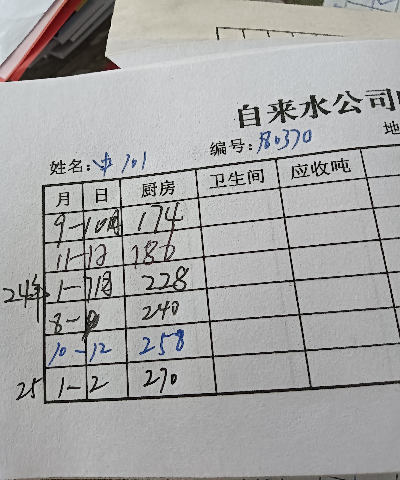 自来水公司
姓名: 101 编号: 80370
月 日 厨房 卫生间 应收吨
9-10月 174
11-12 186
24年 1-7月 228
8-9 240
10-12 258
25 1-2 270